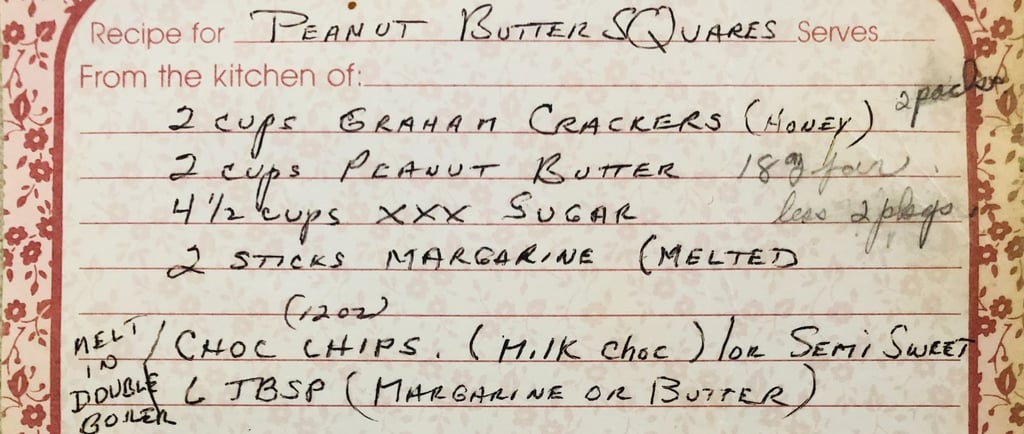 Recipe for PEANUT BUTTER SQUARES Serves
From the kitchen of:
2 cups GRAHAM CRACKERS (HONEY) 2 packs
2 cups PEANUT BUTTER 18 jar
4 1/2 cups XXX SUGAR less 2 pkgs
2 STICKS MARGARINE (MELTED
(12oz)
MELT IN DOUBLE BOILER
CHOC CHIPS. (Milk Choc) / or SEMI SWEET
6 TBSP (MARGARINE OR BUTTER)